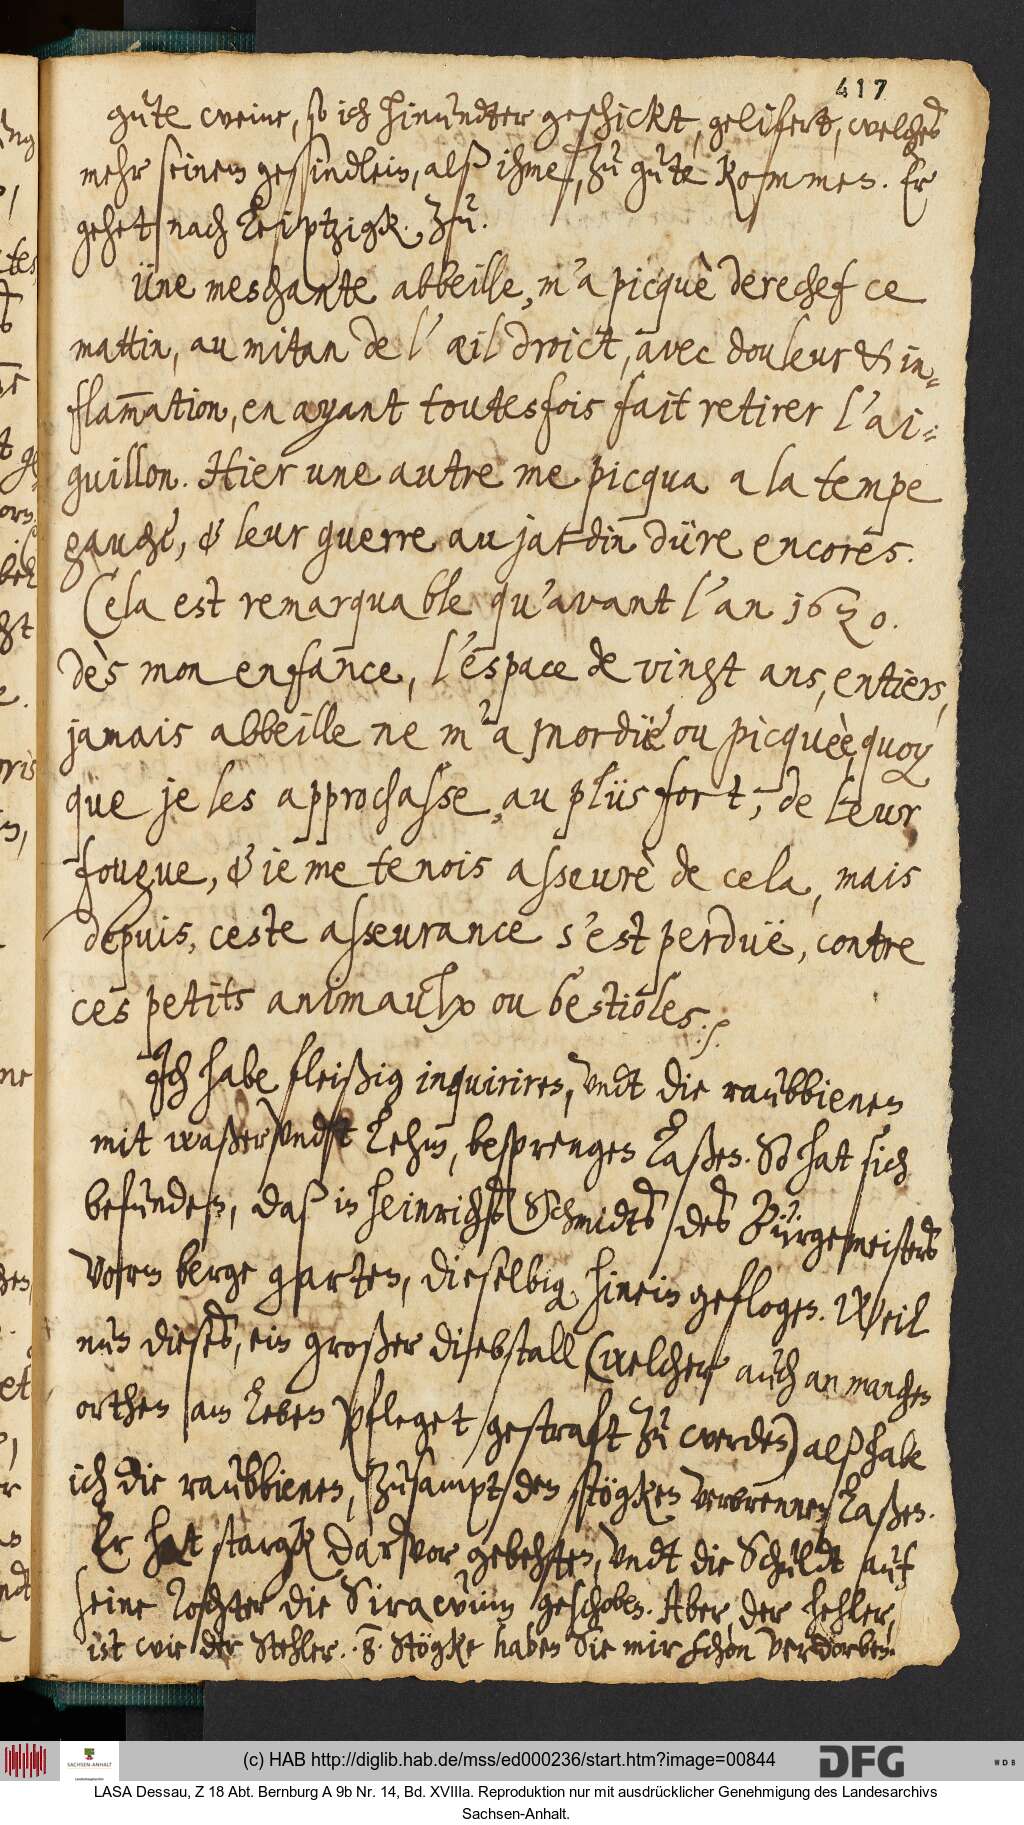 417
gute weine, so ich hinundter geschickt, gelifert, welches
mehr seinem gesindlein, alß ihme, zu gute kommen. Er
gehet nach Leiptzigk. zu.
Üne meschante abbeille, m'a picquè derechef ce
mattin, au mitan de l'œil droict, avec douleur & in-
flam̄ation, en ayant toutesfois fait retirer l'ai-
guillon. Hier une autre me picqua a la tempe
gauche, & leur guerre au jardin düre encores.
Cela est remarquable qu'avant l'an 1620.
dès mon enfance, l'espace de vingt ans, entiers,
jamais abbeille ne m'a mordüe ou picquèe, quoy
que je les approchasse, au plüs fort, de leur
fougue, & ie me tenois asseurè de cela, mais
depuis, ceste asseurance s'est perdüe, contre
ces petits animaulx ou bestioles.
Ich habe fleißig inquiriren, undt die raubbienen
mit waßer undt Lehm, besprengen laßen. So hat sich
befunden, daß in heinrichs Schmidts des Bürgemeisters
vorm berge garten, dieselbig hinein geflogen. Weil
nun dieses, ein großer diebstall (welcher auch an manchen
orthen am leben pfleget gestraft zu werden) alß habe
ich die raubbienen, zusampt den stögken verbrennen laßen.
Er hat stargk darvor gebehten, undt die Schuldt auf
seine Tochter die Siracuum geschoben. Aber der hehler,
ist wie der Stehler. 8. Stögke haben Sie mir schon verdorben.
(c) HAB http://diglib.hab.de/mss/ed000236/start.htm?image=00844
SACHSEN-ANHALT
DFG
WDB
LASA Dessau, Z 18 Abt. Bernburg A 9b Nr. 14, Bd. XVIIIa. Reproduktion nur mit ausdrücklicher Genehmigung des Landesarchivs
Sachsen-Anhalt.